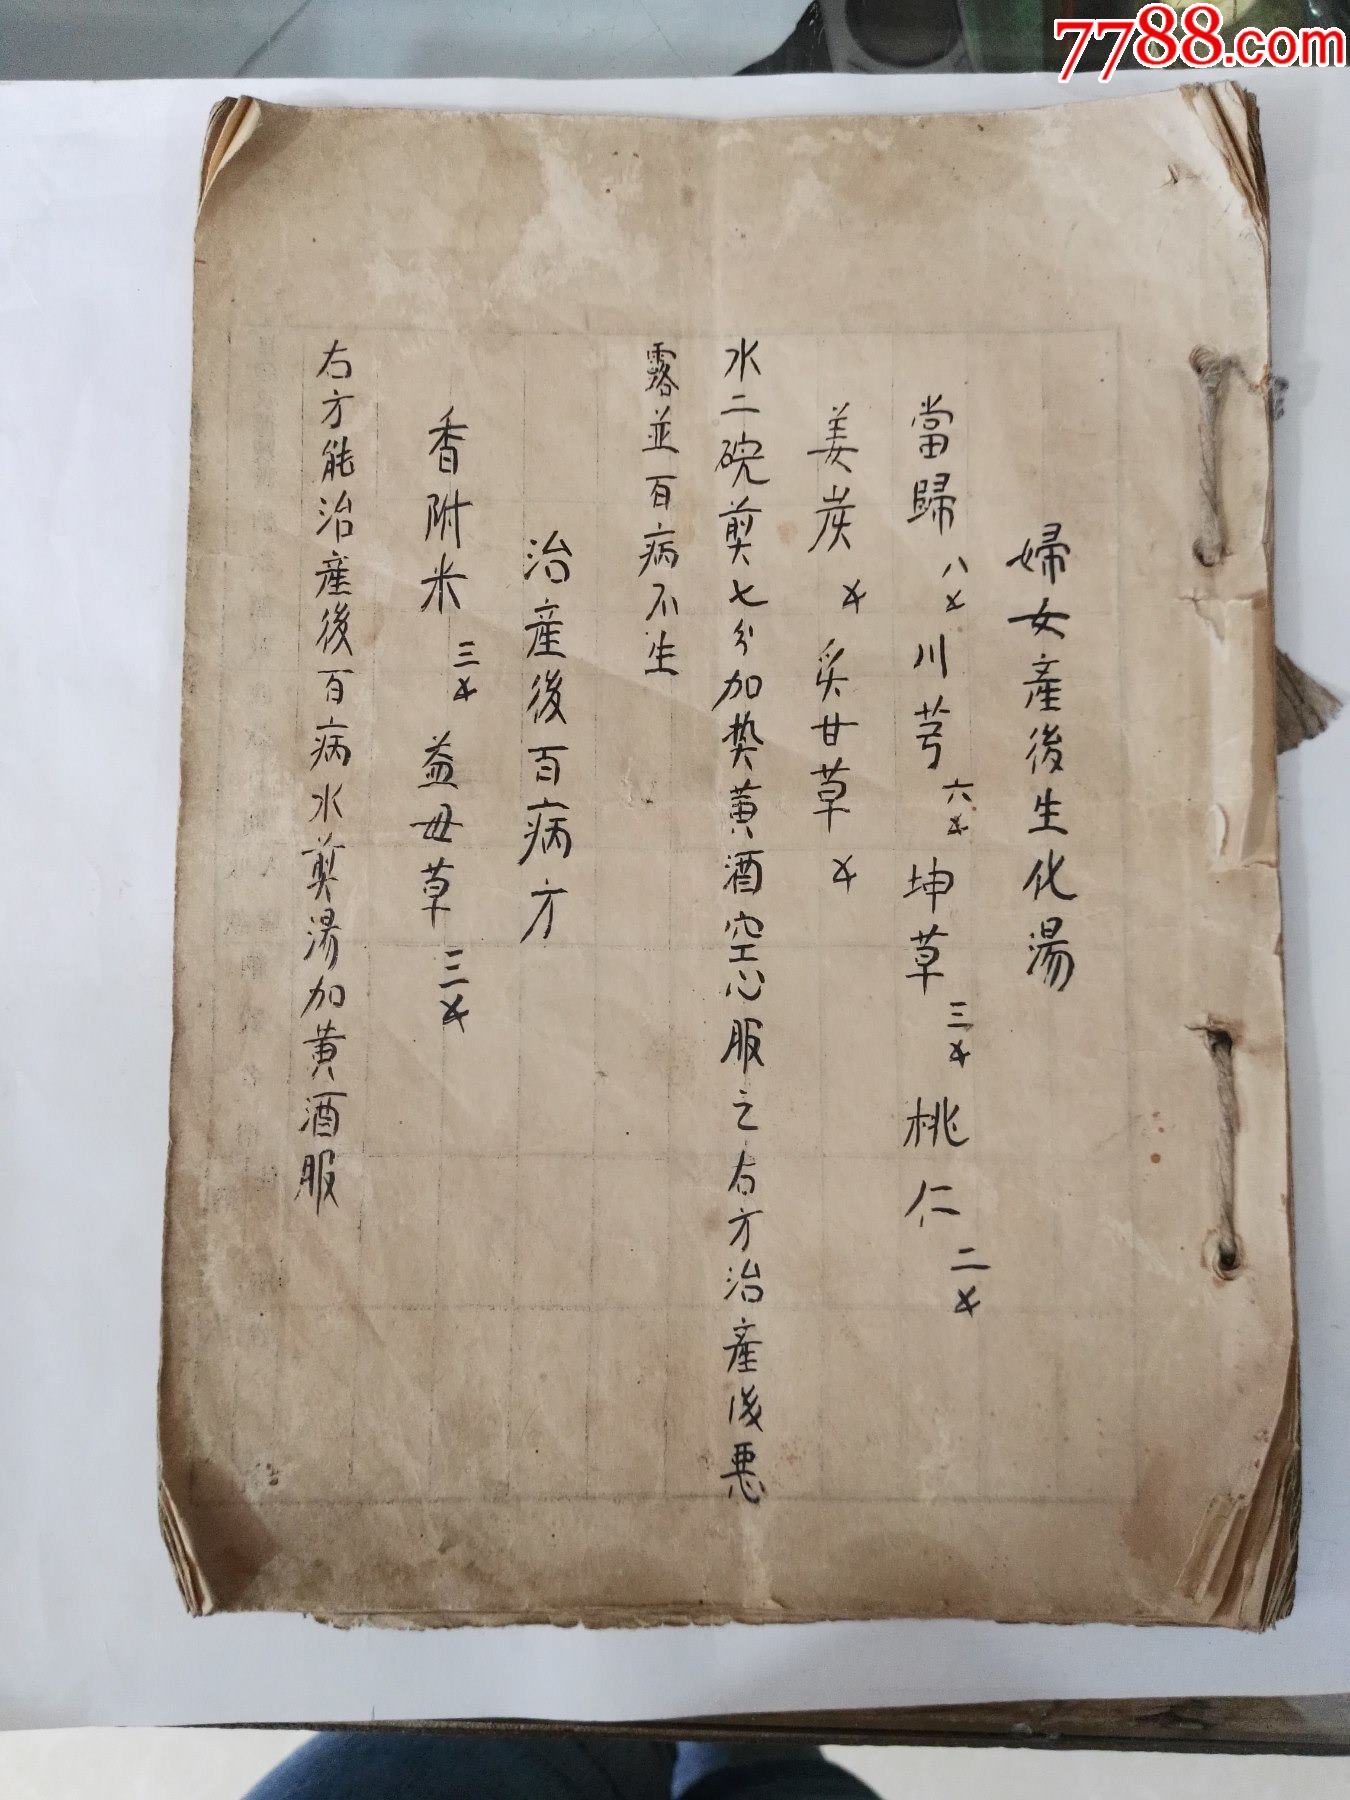 7788.com
婦女產後生化湯
當歸 八㐅 川芎 六㐅 坤草 三㐅 桃仁 二㐅
姜炭 㐅 炙甘草 㐅
水二碗煎七分加熱黄酒空心服之右方治產後悪
露並百病不生
治產後百病方
香附米 三㐅 益母草 三㐅
右方能治產後百病水煎湯加黄酒服